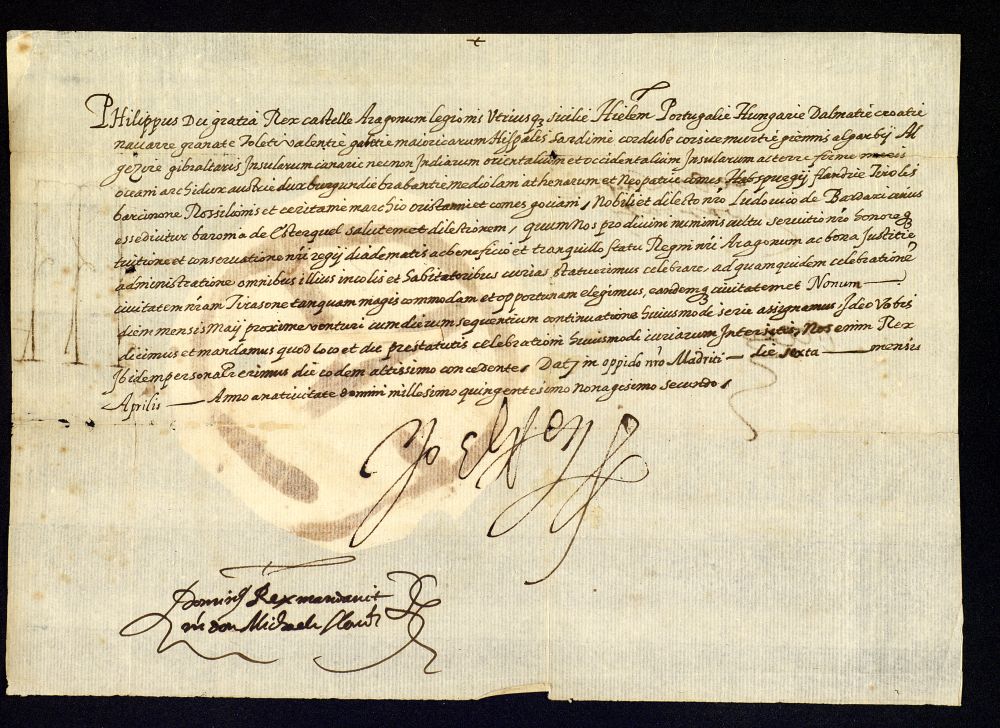 PHilippus Dei gratiâ Rex castelle Aragonum legionis Vtriusq3 sicilie Hierlem Portugalie Hungarie Dalmatie croatie
nauarre granate Toleti valentie galitie maioricarum Hispalis Sardinie cordube corsice murtie giennis algarbij Al
gezire gibraltaris Insularum canarie necnon Indiarum orientalium et occidentalium Insularum ac terre firme maris
oceani archidux austrie dux burgundie brabantie mediolani athenarum et Neopatrie comes Habspurgij flandrie Tirolis
barcinone Rossilionis et ceritanie marchio oristani et comes gociani, Nobili et dilecto nro Ludouico de Bardaxi cuius
esse dicitur baronia de Esterquel salutem et dilectionem, quum Nos pro diuini numinis cultu seruitio nro honore q3
tuitione et conseruatione nri regij diadematis ac beneficio et tranquillo statu Regni nri Aragonum ac bona Justitie
administratione omnibus illius incolis et habitatoribus curias statuerimus celebrare, ad quam quidem celebratione
ciuitatem nram Tirasone tanquam magis commodam et opportunam elegimus, eandemq3 ciuitatem et Nonum
diem mensis Maij proxime venturi cum dierum sequentium continuatione huiusmodi serie assignamus, Ideo Vobis
dicimus et mandamus quod loco et die prestatutis celebrationi huiusmodi curiarum Intersitis, Nos enim Rex
Ibidem persona erimus die eodem altissimo concedente, Dat in oppido nro Madriti die sexta mensis
Aprilis Anno a natiuitate domini millesimo quingentesimo nonagesimo secundo,
Yo el Rey
Dominus Rex mandauit
mi don Michaeli